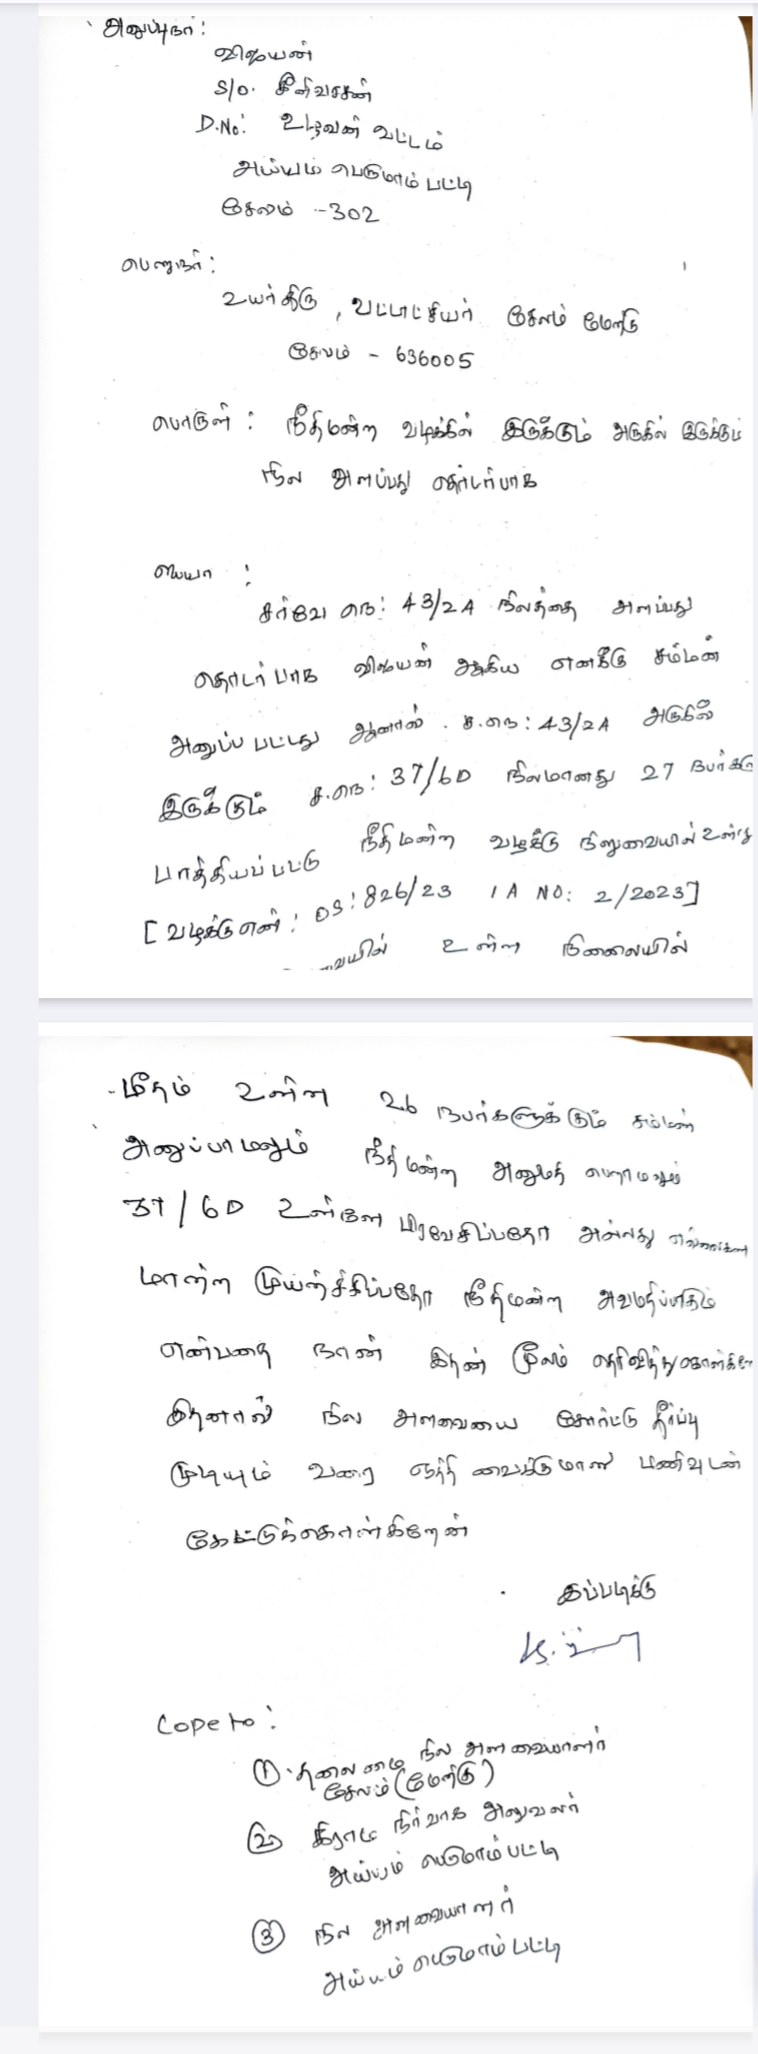 அனுப்புநர்:
விஜயன்
S/o. சீனிவாசன்
D.No: உழவன் வட்டம்
அய்யம் பெருமாம் பட்டி
சேலம் -302
பெறுநர்:
உயர்திரு, வட்டாட்சியர் சேலம் மேற்கு
சேலம் - 636005
பொருள்: நீதிமன்ற வழக்கில் இருக்கும் அருகில் இருக்கும்
நில அளப்பது தொடர்பாக
ஐயா :
சர்வே நெ: 43/2A நிலத்தை அளப்பது
தொடர்பாக விஜயன் ஆகிய எனக்கு சம்மன்
அனுப்ப பட்டது ஆனால். ச.நெ: 43/2A அருகில்
இருக்கும் ச.நெ: 37/6D நிலமானது 27 நபர்கரு
பாத்தியப்பட்டு நீதிமன்ற வழக்கு நிலுவையில் உள்ளது
[வழக்கு எண்: OS: 826/23 IA NO: 2/2023]
வையில் உள்ள நிலையில்
மீதம் உள்ள 26 நபர்களுக்கும் சம்மன்
அனுப்பாமலும் நீதிமன்ற அனுமதி பெறாமலும்
37/6D உள்ளே பிரவேசிப்பதோ அல்லது எல்லைகளை
மாற்ற முயற்ச்சிப்பதோ நீதிமன்ற அவமதிப்பாகும்
என்பதை நான் இதன் மூலம் தெரிவித்துகொள்கிறே
இதனால் நில அளவையை கோர்ட்டு தீர்ப்பு
முடியும் வரை நிறுத்தி வைக்குமாறு பணிவுடன்
கேட்டுக்கொள்கிறேன்
இப்படிக்கு
Cope to:
① தலைமை நில அளவையாளர்
சேலம் (மேற்கு)
② கிராம நிர்வாக அலுவலர்
அய்யம் பெருமாம் பட்டி
③ நில அளவையாளர்
அய்யம் பெருமாம் பட்டி